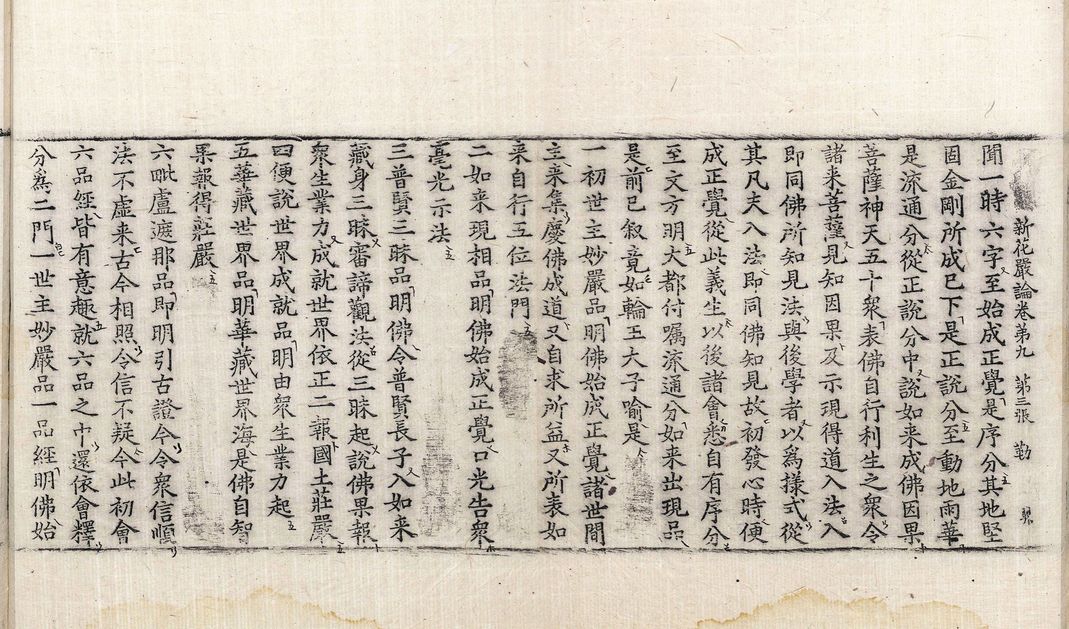 新花嚴論卷第九　第三張　勤
聞一時六字至始成正覺是序分其地堅
固金剛所成已下是正說分至動地雨華
是流通分從正說分中說如来成佛因果
菩薩神天五十衆表佛自行利生之衆令
諸来菩薩見知因果及示現得道入法入
即同佛所知見法與後學者以爲樣式從
其凡夫入法即同佛知見故初發心時便
成正覺從此義生以後諸會悉自有序分
至文方明大都付囑流通分如来出現品
是前已叙竟如輪王大子喻是
一初世主妙嚴品明佛始成正覺諸世間
主来集慶佛成道又自求所益又所表如
来自行五位法門
二如来現相品明佛始成正覺口光告衆
毫光示法
三普賢三昧品明佛令普賢長子入如来
藏身三昧審諦觀法從三昧起說佛果報
衆生業力成就世界依正二報國土莊嚴
四便說世界成就品明由衆生業力起
五華藏世界品明華藏世界海是佛自智
果報得莊嚴
六毗盧遮那品即明引古證今令衆信順
法不虛来古今相照令信不疑今此初會
六品經皆有意趣就六品之中還依會釋
分爲二門一世主妙嚴品一品經明佛始